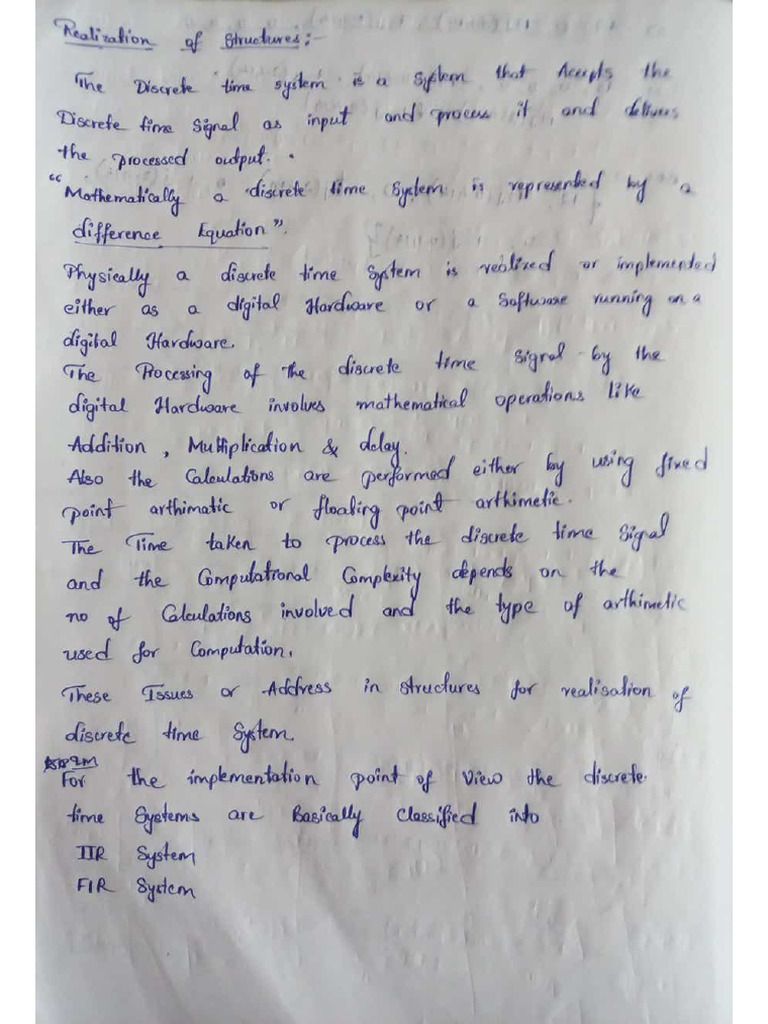 Realization of Structures:-
The Discrete time system is a System that Accepts the
Discrete time Signal as input and process it and delivers
the processed output.
"Mathematically a discrete time System is represented by a
difference Equation".
Physically a discrete time System is realized or implemented
either as a digital Hardware or a Software running on a
digital Hardware.
The Processing of the discrete time Signal by the
digital Hardware involves mathematical operations like
Addition, Multiplication & delay.
Also the Calculations are performed either by using fixed
point arthimatic or floating point arthimetic.
The Time taken to process the discrete time Signal
and the Computational Complexity depends on the
no of Calculations involved and the type of arthimetic
used for Computation.
These Issues or Address in structures for realisation of
discrete time System.
For the implementation point of View the discrete
time Systems are Basically Classified into
IIR System
FIR System